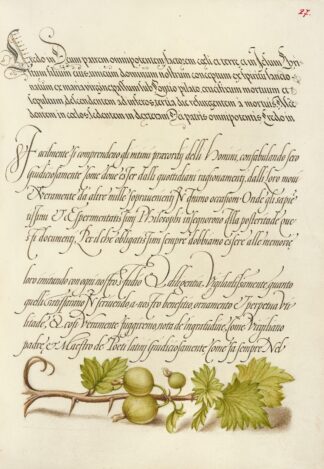 27.
Credo in Deum patrem omnipotentem factorem cæli et terræ et in Iesum Chri
stum filium eius unicum dominum nostrum conceptum ex spiritu sancto
natum ex maria virgine passum sub Pontio pilato crucifixum mortuum et
sepultum, descendentem ad inferos tertia die resurgentem a mortuis Asce
dentem in cælos sedentem in dextera Dei patris omnipotentis Credo in
Facilmente si comprendeno da intimi præcordij delli Homini, confabulando sero
giudiciosamente, Come do esser dalli quottidiani ragionamenti, dalli loro moui
Veramente da altre mille sopravenienti
uissimi Et Esperimentati sij Philosophi insegnorono alla posterita de que
sti documenti, Per il che obligati loro sempre dobbiamo essere alle memorie
loro emitendo con ogni nostro studio Et diligentia Vigilantissimamente quanto
quelli Castissimo Et servendo a nostro beneficio, ornamento Et perpetua Vti
litade, Et cosi Veramente fuggiremo nota de ingratitudine, Come Virgiliano
padre, Et Maestro de Poeti latini giudiciosamente Come fa sempre Nel